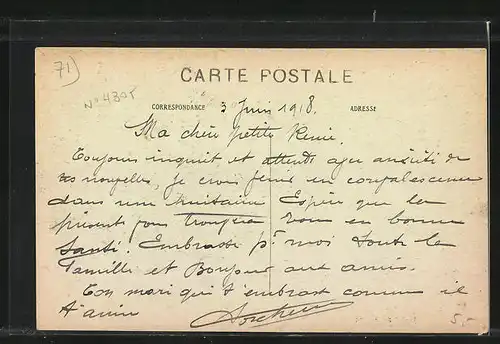 71)
N° 4305
CARTE POSTALE
CORRESPONDANCE
ADRESSE
3 Juin 1918.
Ma chère petite
Toujours inquiet et attends avec anxiété de
tes nouvelles, je crois finir en convalescence
dans une huitaine Espère que la
présente vous trouvera tous en bonne
Santé. Embrasse pr moi toute la
famille et Bonjour aux amis.
Ton mari qui t'embrasse comme il
t'aime
5,-